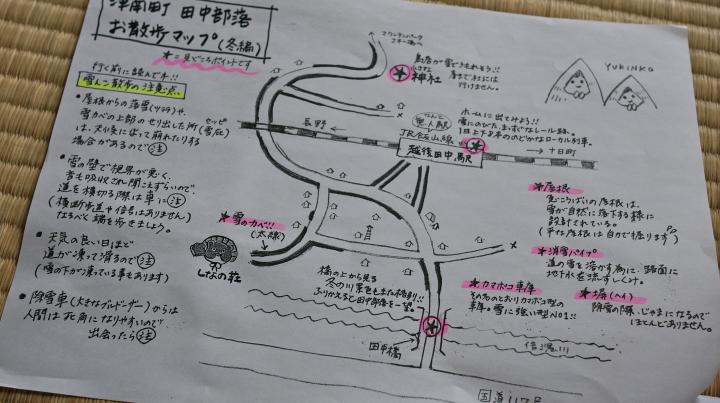 津南町 田中部落
お散歩マップ(冬編)
★=見どころポイントです
行く前に読んで下!!
雪ん子散歩の注意点
●屋根からの落雪(ツララ)や、
雪カベの上部のせり出した所(雪庇)
セッピ
は、天候によって崩れたりする
場合があるので注
●雪の壁で視界が悪く、
音も吸収され聞こえずらいので、
道を横切る際は車に注
(横断歩道や信号はありません)
なるべく端を歩きましょう。
●天気の良い日ほど
道が凍って滑るので注
(雪の下が凍っている事もあります)
●除雪車(大きなブルドーザー)からは
人間は死角になりやすいので
出会ったら注
マウンテンパーク
スキー場へ
鳥居が雪でうもれそう!!
小さな
神社
行けません。
YUKINKO
ホームに出てみよう!!
雪にのびた、まっすぐなレール跡。
のどかなローカル列車。
なんと
無人駅
長野
JR飯山線
越後田中駅
十日町
★雪のカベ!!
(太線)
しなの荘
橋の上から見る
冬の川景色もまた格別!!
ふりかえると田中部落を一望。
田中橋
★屋根
雪が自然に落下する様に
設計されている。
(平な屋根は自力で掘ります)
★消雪パイプ
道の雪を溶かす為に、路面に
地下水を流すしくみ。
★カマボコ車庫
そのものどおりカマボコ型の
車庫。雪に強い型NO1!!
★塀(ヘイ)
除雪の際、じゃまになるので
ほとんどありません。
信濃川
国道117号